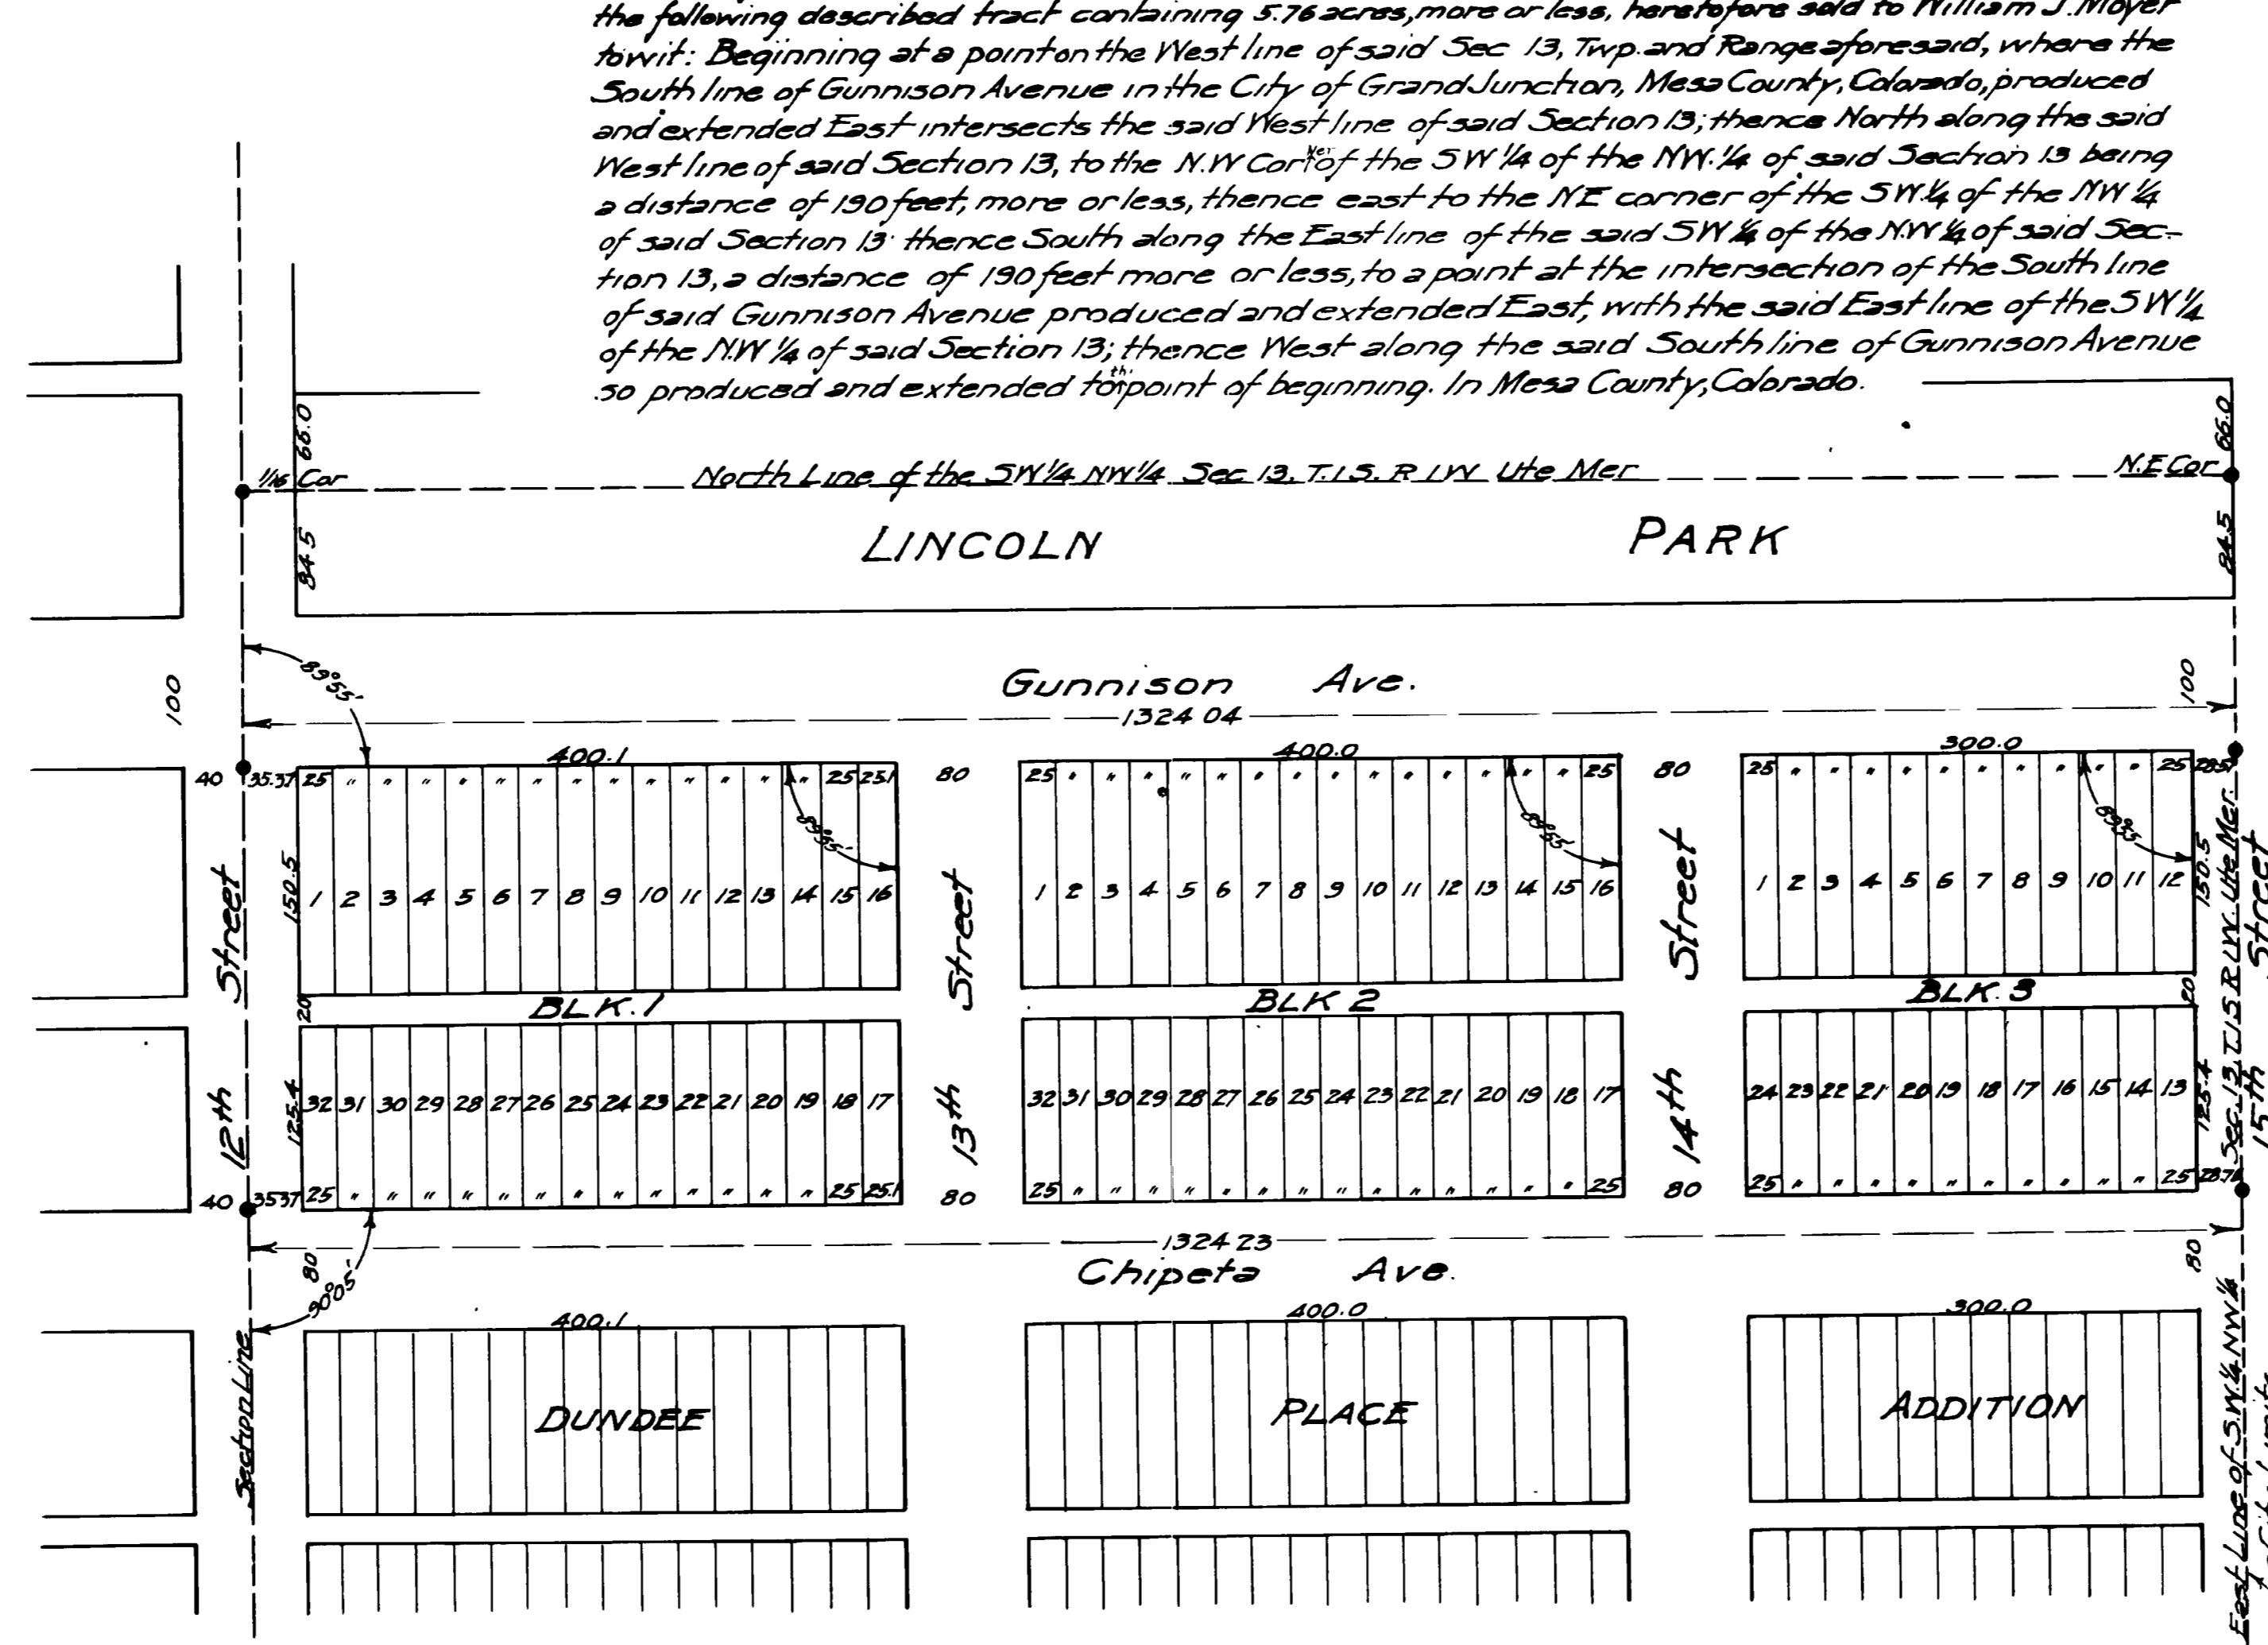 the following described tract containing 5.76 acres, more or less, heretofore sold to William J. Moyer
towit: Beginning at a point on the West line of said Sec 13, Twp. and Range aforesaid, where the
South line of Gunnison Avenue in the City of Grand Junction, Mesa County, Colorado, produced
and extended East intersects the said West line of said Section 13; thence North along the said
West line of said Section 13, to the N.W Corner of the SW 1/4 of the NW. 1/4 of said Section 13 being
a distance of 190 feet, more or less, thence east to the NE corner of the SW. 1/4 of the NW 1/4
of said Section 13 thence South along the East line of the said SW 1/4 of the N.W 1/4 of said Sec-
tion 13, a distance of 190 feet more or less, to a point at the intersection of the South line
of said Gunnison Avenue produced and extended East, with the said East line of the SW 1/4
of the N.W 1/4 of said Section 13; thence West along the said South line of Gunnison Avenue
so produced and extended to th. point of beginning. In Mesa County, Colorado.
66.0 66.0
1/16 Cor North Line of the SW 1/4 NW 1/4 Sec 13, T. 1 S. R 1 W Ute Mer N.E Cor
84.5 LINCOLN PARK 84.5
89°55'
100 Gunnison Ave. 100
1324 04
400.1 400.0 300.0
40 35.37 25 " " " " " " " " " " " " " 25 25.1 80 25 " " " " " " " " " " " " " " 25 80 25 " " " " " " " " " " 25 28.57
89°55' 89°55' 89°55'
150.5 1 2 3 4 5 6 7 8 9 10 11 12 13 14 15 16 1 2 3 4 5 6 7 8 9 10 11 12 13 14 15 16 1 2 3 4 5 6 7 8 9 10 11 12 150.5
Street Street Street Street
20 BLK. 1 BLK 2 BLK. 3 20
125.4 32 31 30 29 28 27 26 25 24 23 22 21 20 19 18 17 32 31 30 29 28 27 26 25 24 23 22 21 20 19 18 17 24 23 22 21 20 19 18 17 16 15 14 13 125.4
12th 13th 14th 15th
40 3537 25 " " " " " " " " " " " " " 25 25.1 80 25 " " " " " " " " " " " " " " 25 80 25 " " " " " " " " " " 25 28.76
1324 23
80 Chipeta Ave. 80
90°05'
400.1 400.0 300.0
DUNDEE PLACE ADDITION
Section Line
East Line of S.W 1/4 NW 1/4 Sec. 13. T. 1 S R 1 W. Ute Mer.
City Limits